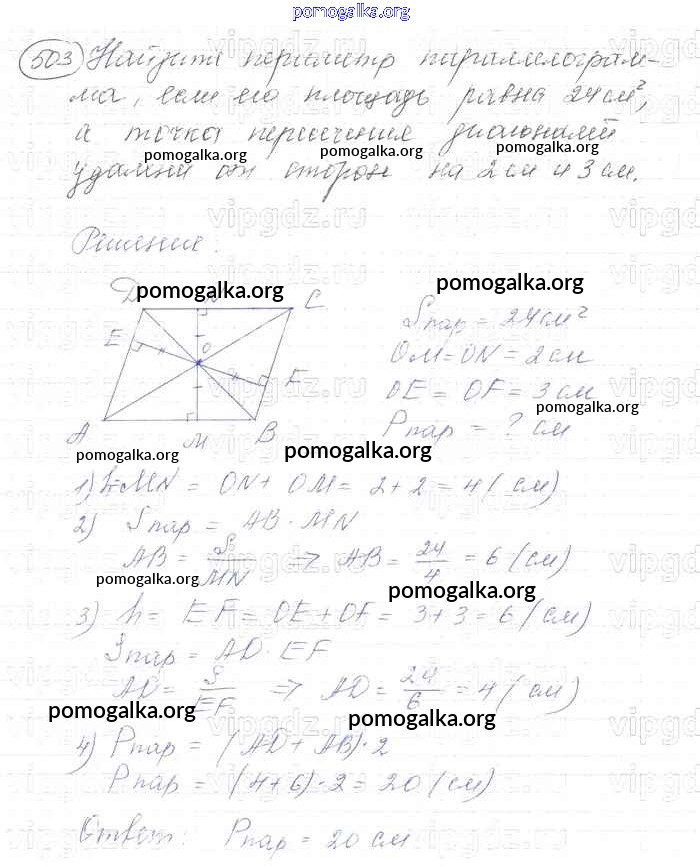 pomogalka.org
503 Найдите периметр параллелограм-
ма, если его площадь равна 24 см²,
а точка пересечения диагоналей
pomogalka.org pomogalka.org pomogalka.org
удалена от сторон на 2 см и 3 см.
Решение:
pomogalka.org
pomogalka.org
D N C
Sпар = 24 см²
E O
OM = ON = 2 см
F
OE = OF = 3 см
pomogalka.org
A M B
Pпар = ? см
pomogalka.org pomogalka.org
1) h = MN = ON + OM = 2 + 2 = 4 (см)
2) Sпар = AB · MN
AB = S/MN => AB = 24/4 = 6 (см)
pomogalka.org pomogalka.org
3) h = EF = OE + OF = 3 + 3 = 6 (см)
Sпар = AD · EF
AD = S/EF => AD = 24/6 = 4 (см)
pomogalka.org pomogalka.org
4) Pпар = (AD + AB) · 2
Pпар = (4 + 6) · 2 = 20 (см)
Ответ: Pпар = 20 см